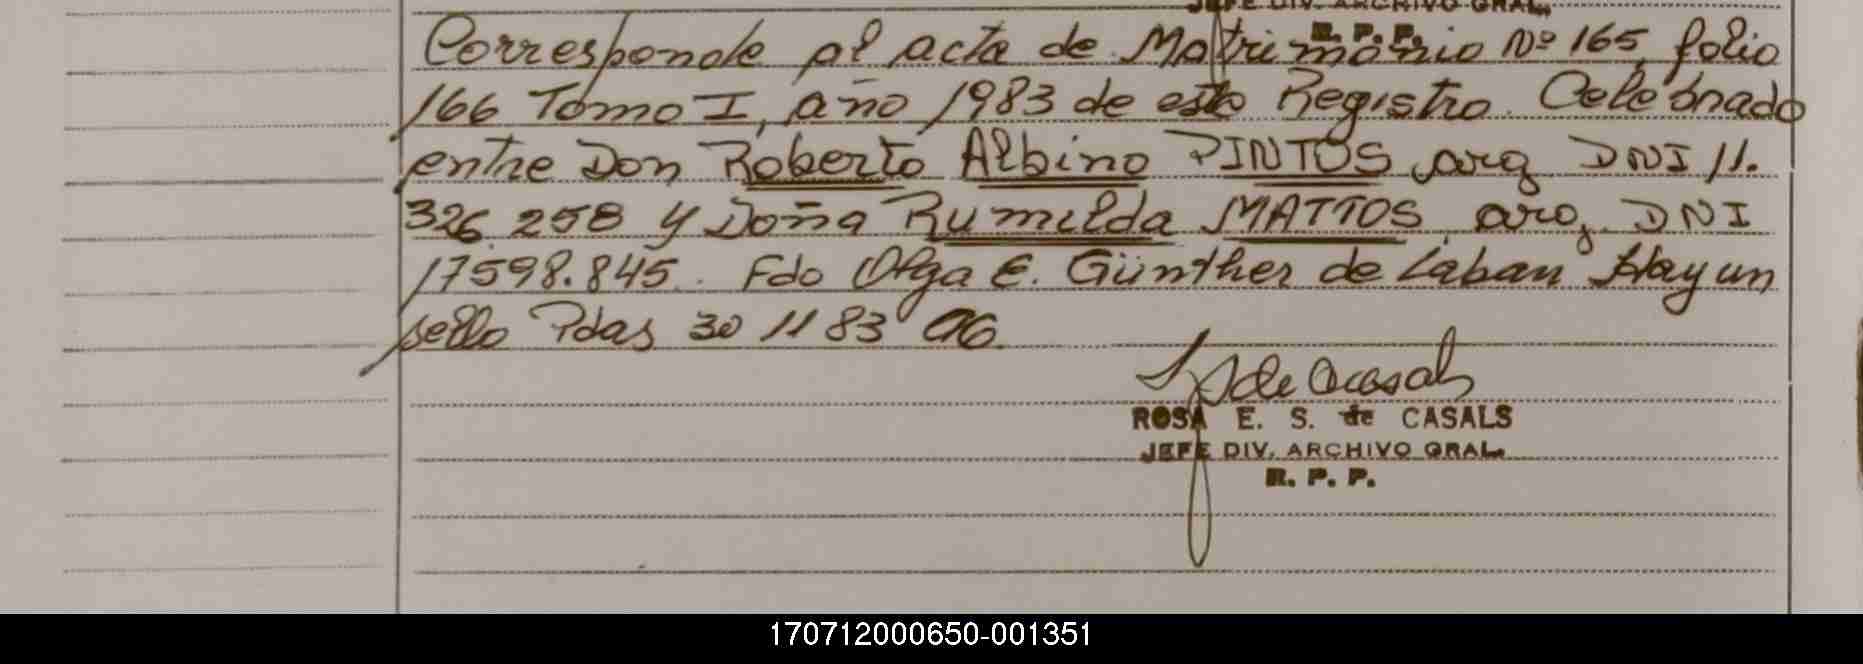 JEFE DIV. ARCHIVO GRAL.
R. P. P.
Corresponde al acta de Matrimonio Nº 165, folio
166 Tomo I, año 1983 de este Registro. Celebrado
entre Don Roberto Albino PINTOS, arg DNI 11.
326.258 y Doña Rumilda MATTOS, arg. DNI
17598.845. Fdo Olga E. Günther de Laban Hay un
sello Pdas 30 11 83
de Casals
ROSA E. S. de CASALS
JEFE DIV. ARCHIVO GRAL.
R. P. P.
170712000650-001351